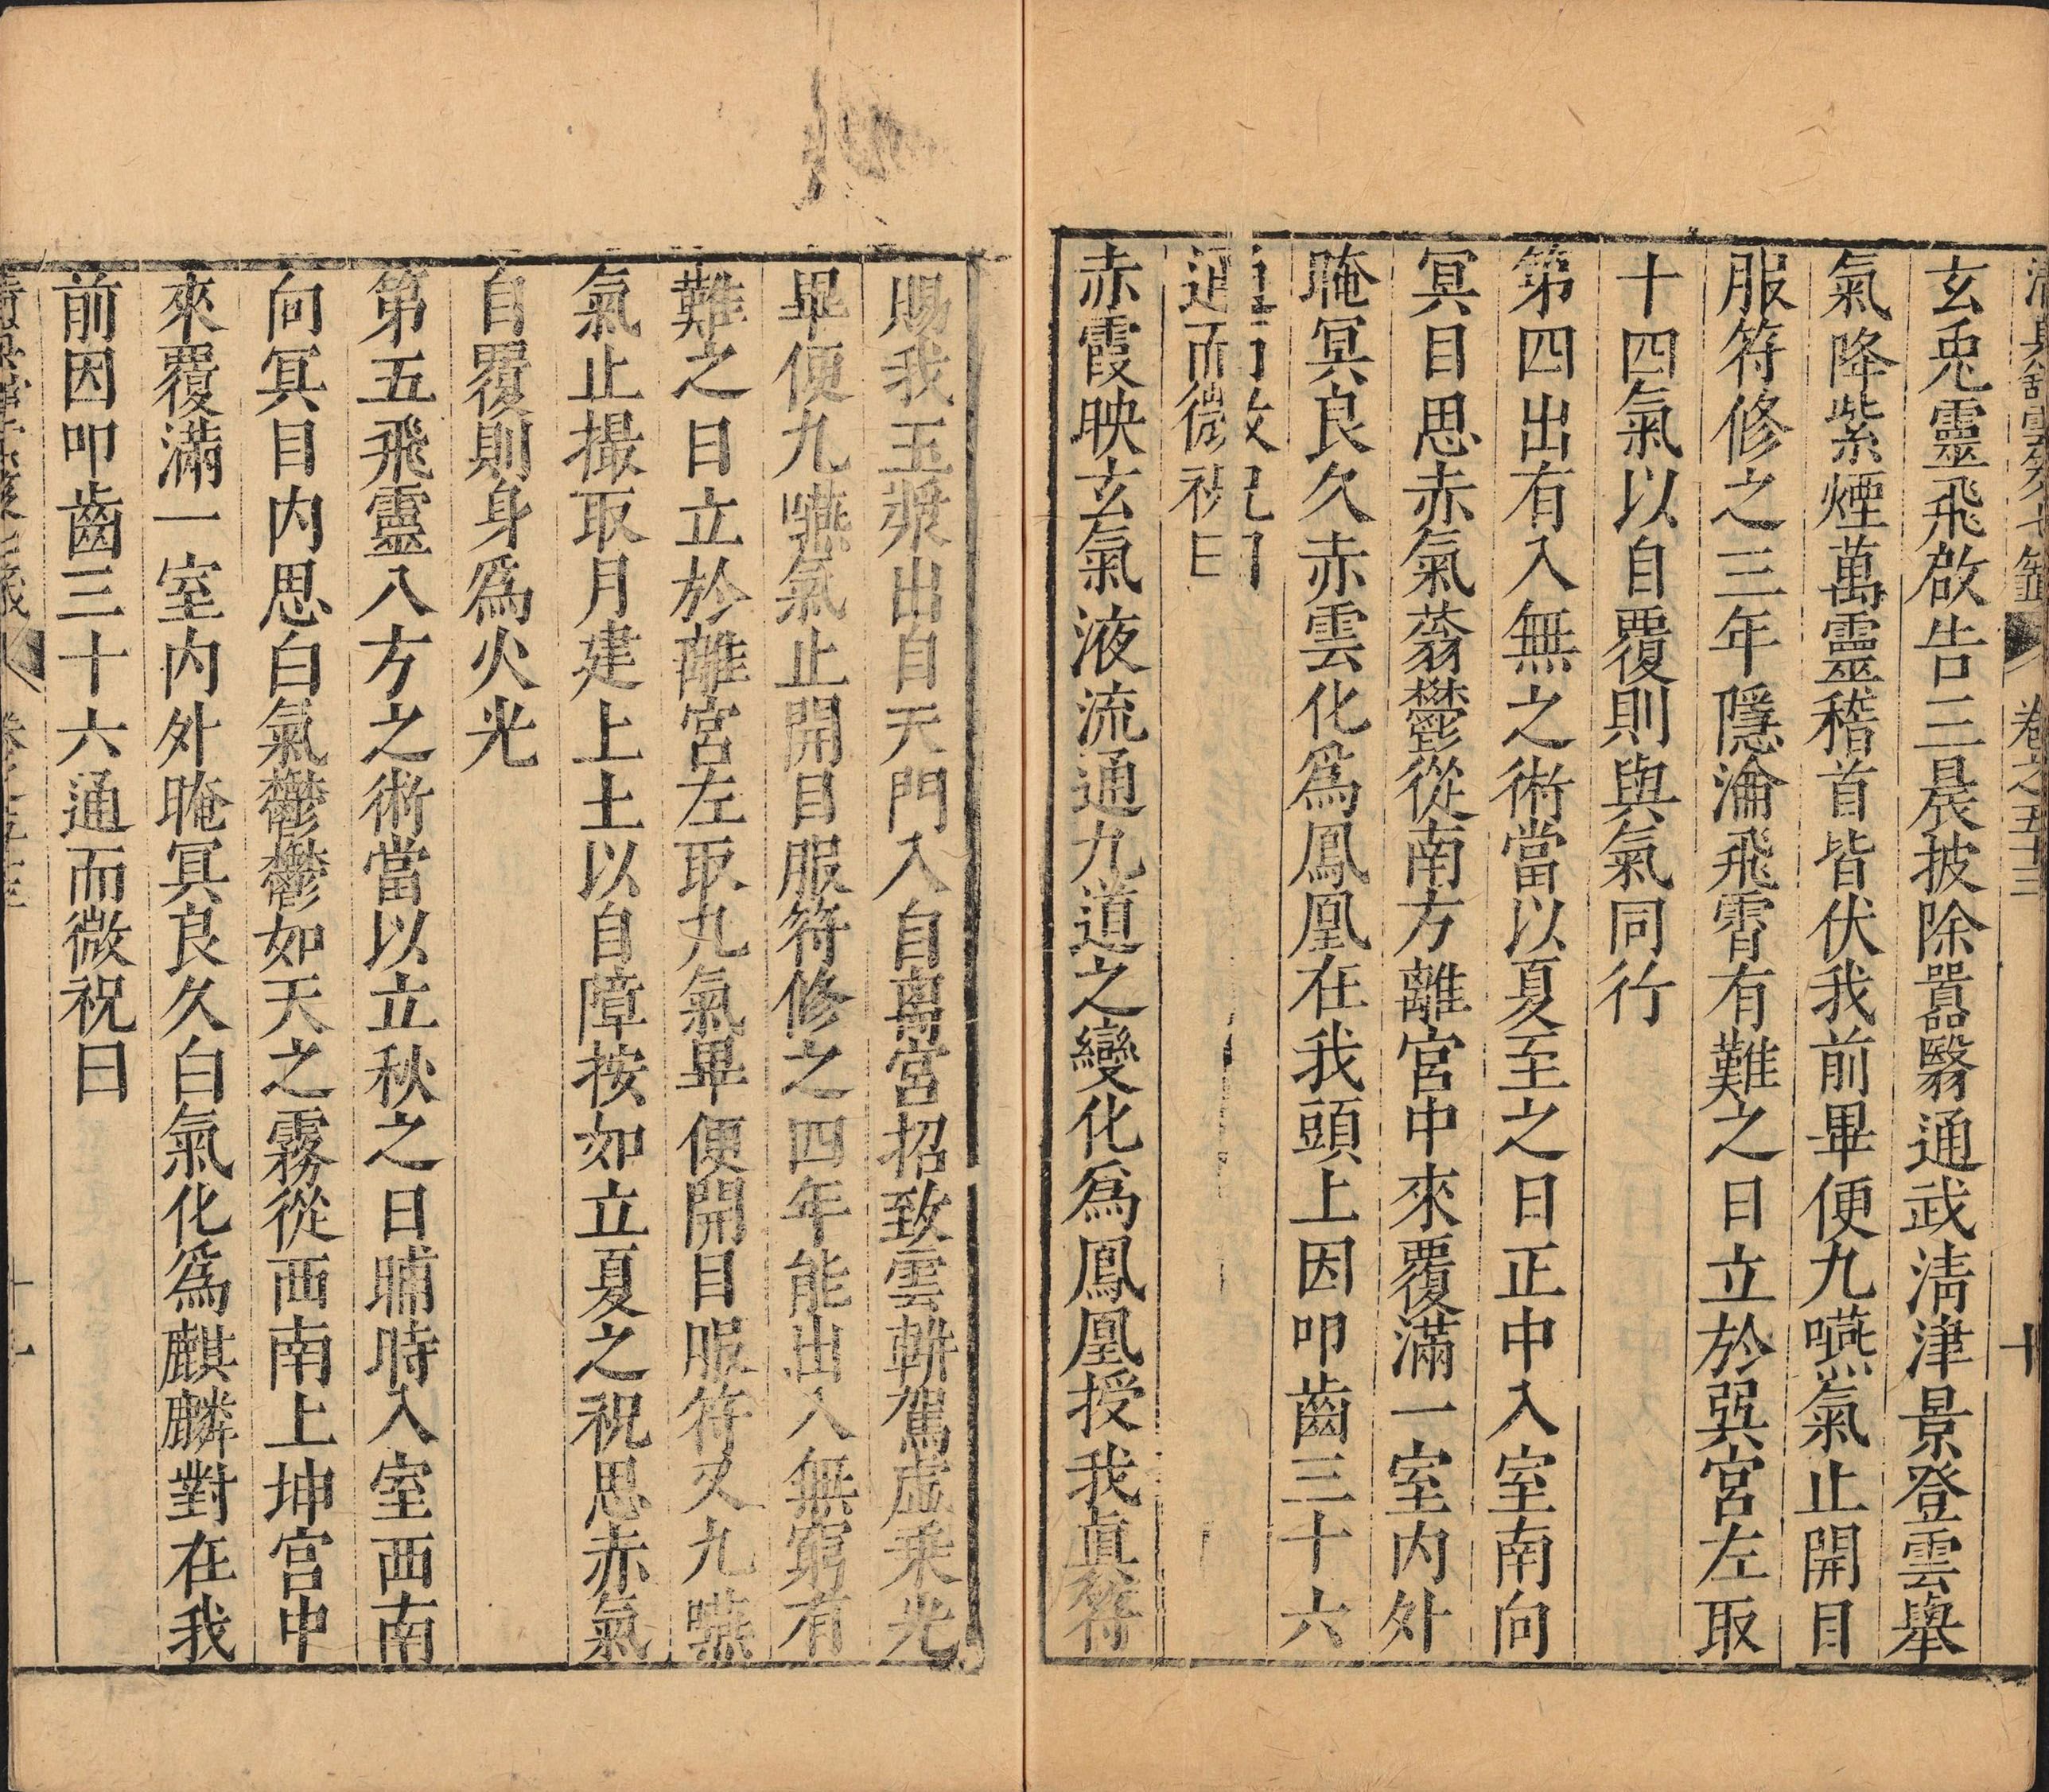 玄兎靈飛啟告三晨披除嚚翳通武清津景登雲舉
氣降紫煙萬靈稽首皆伏我前畢便九嚥氣止開目
服符修之三年隱淪飛霄有難之日立於巽宮左取
十四氣以自覆則與氣同行
第四出有入無之術當以夏至之日正中入室南向
冥目思赤氣蓊鬱從南方離宮中來覆滿一室內外
晻冥良久赤雲化爲鳳凰在我頭上因叩齒三十六
通而微祝曰
赤霞映玄氣液流通九道之變化爲鳳凰授我真符
賜我玉漿出自天門入自離宮招致雲軿駕虛乘光
畢便九嚥氣止開目服符修之四年能出入無窮有
難之日立於離宮左取九氣畢便開目服符又九嚥
氣止撮取月建上土以自障按如立夏之祝思赤氣
自覆則身爲火光
第五飛靈八方之術當以立秋之日晡時入室西南
向冥目內思白氣鬱鬱如天之霧從西南上坤宮中
來覆滿一室內外晻冥良久白氣化爲麒麟對在我
前因叩齒三十六通而微祝曰